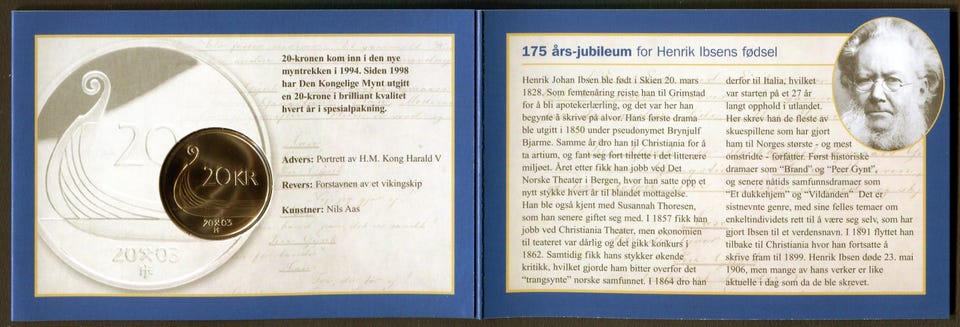 20-kronen kom inn i den nye
myntrekken i 1994. Siden 1998
har Den Kongelige Mynt utgitt
en 20-krone i brilliant kvalitet
hvert år i spesialpakning.
Advers: Portrett av H.M. Kong Harald V
Revers: Forstavnen av et vikingskip
Kunstner: Nils Aas
20
20 03
20 KR
20 03
175 års-jubileum for Henrik Ibsens fødsel
Henrik Johan Ibsen ble født i Skien 20. mars
1828. Som femtenåring reiste han til Grimstad
for å bli apotekerlærling, og det var her han
begynte å skrive på alvor. Hans første drama
ble utgitt i 1850 under pseudonymet Brynjulf
Bjarme. Samme år dro han til Christiania for å
ta artium, og fant seg fort tilrette i det litterære
miljøet. Året etter fikk han jobb ved Det
Norske Theater i Bergen, hvor han satte opp et
nytt stykke hvert år til blandet mottagelse.
Han ble også kjent med Susannah Thoresen,
som han senere giftet seg med. I 1857 fikk han
jobb ved Christiania Theater, men økonomien
til teateret var dårlig og det gikk konkurs i
1862. Samtidig fikk hans stykker økende
kritikk, hvilket gjorde ham bitter overfor det
“trangsynte” norske samfunnet. I 1864 dro han
derfor til Italia, hvilket
var starten på et 27 år
langt opphold i utlandet.
Her skrev han de fleste av
skuespillene som har gjort
ham til Norges største - og mest
omstridte - forfatter. Først historiske
dramaer som “Brand” og “Peer Gynt”,
og senere nåtids samfunnsdramaer som
“Et dukkehjem” og “Vildanden” Det er
sistnevnte genre, med sine felles temaer om
enkeltindividets rett til å være seg selv, som har
gjort Ibsen til et verdensnavn. I 1891 flyttet han
tilbake til Christiania hvor han fortsatte å
skrive fram til 1899. Henrik Ibsen døde 23. mai
1906, men mange av hans verker er like
aktuelle i dag som da de ble skrevet.